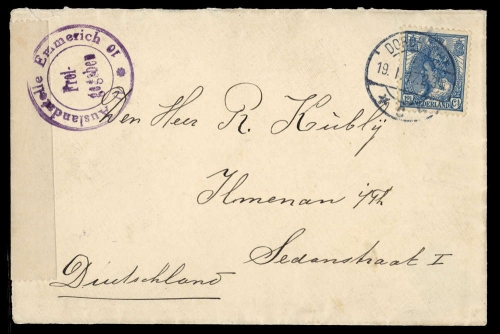 Auslandstelle Emmerich 01
Frei-
gegeben
19. 1.
NEDERLAND
Den Heer R. Kübly
Ilmenan i/Th
Sedanstraat I
Diutschland